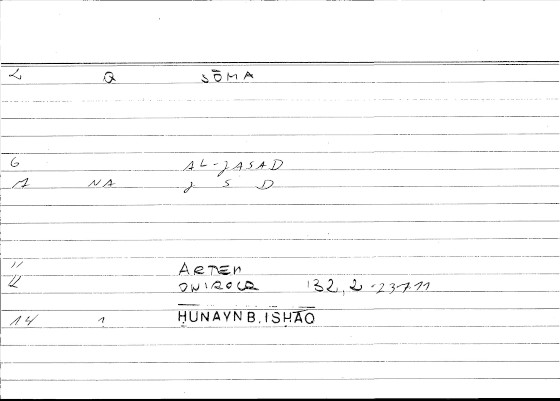 2 Q SŌMA
6 AL-JASAD
7 NA J S D
11 ARTEM
12 ONIROCR 132, 2 - 237.11
14 1 ḤUNAYN B. ISḤĀQ